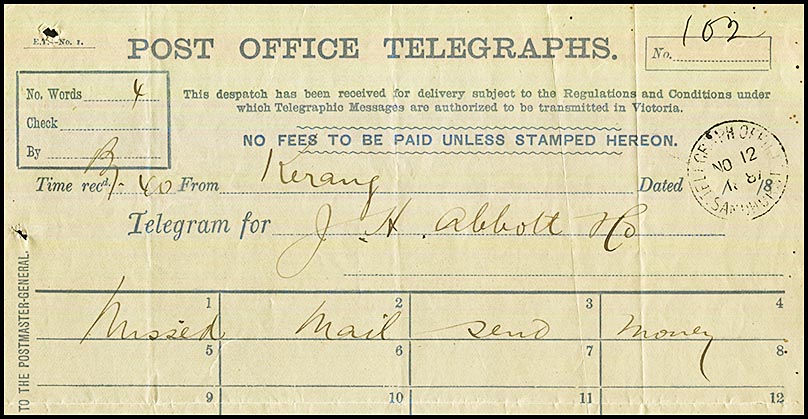 E.T.—No. 1.
POST OFFICE TELEGRAPHS.
No. 102
No. Words 4
Check
By
This despatch has been received for delivery subject to the Regulations and Conditions under
which Telegraphic Messages are authorized to be transmitted in Victoria.
NO FEES TO BE PAID UNLESS STAMPED HEREON.
Time recd. 1-40 From Kerang Dated 18
TELEGRAPH OFFICE
NO 12
81
SANDHURST
Telegram for J H Abbott
TO THE POSTMASTER-GENERAL.
1 2 3 4
Missed Mail send money
5 6 7 8
9 10 11 12